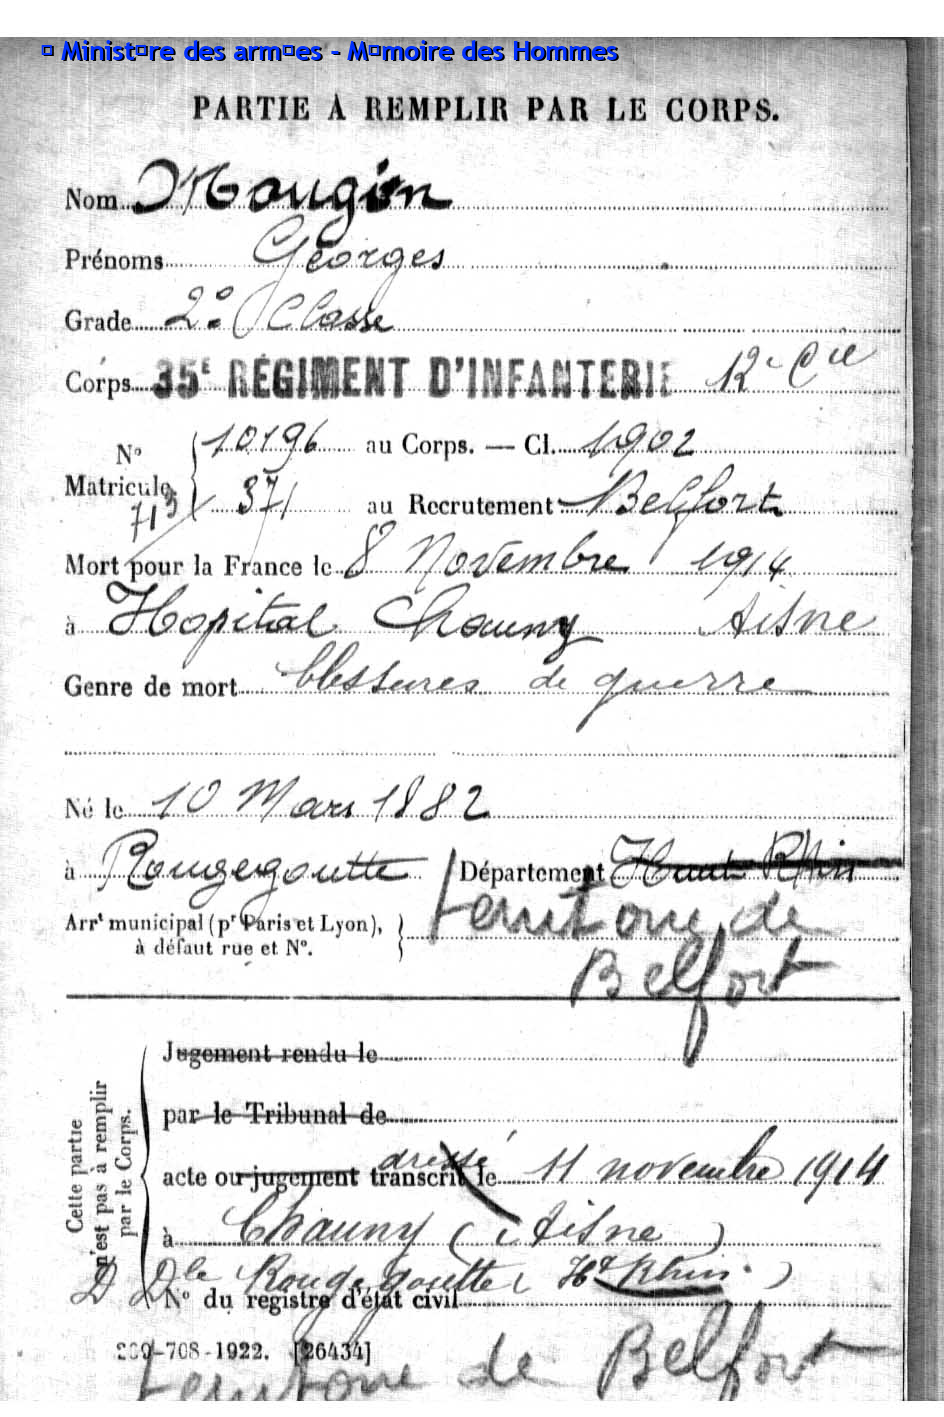 © Ministère des armées - Mémoire des Hommes
PARTIE À REMPLIR PAR LE CORPS.
Nom Mougin
Prénoms Georges
Grade 2e Classe
Corps 35e RÉGIMENT D'INFANTERIE 12e Cie
No Matricule 10196 au Corps. — Cl. 1902
713 371 au Recrutement Belfort
Mort pour la France le 8 Novembre 1914
à Hopital Chauny Aisne
Genre de mort blessures de guerre
Né le 10 Mars 1882
à Rougegoutte Département Haut Rhin
Arrt municipal (pr Paris et Lyon), à défaut rue et No. territoire de
Belfort
Cette partie n'est pas à remplir par le Corps.
Jugement rendu le
par le Tribunal de
acte ou jugement transcrit le dressé 11 novembre 1914
à Chauny (Aisne)
D Dle Rougegoutte (Ht Rhin.)
No du registre d'état civil
-708-1922. [26434]
territoire de Belfort